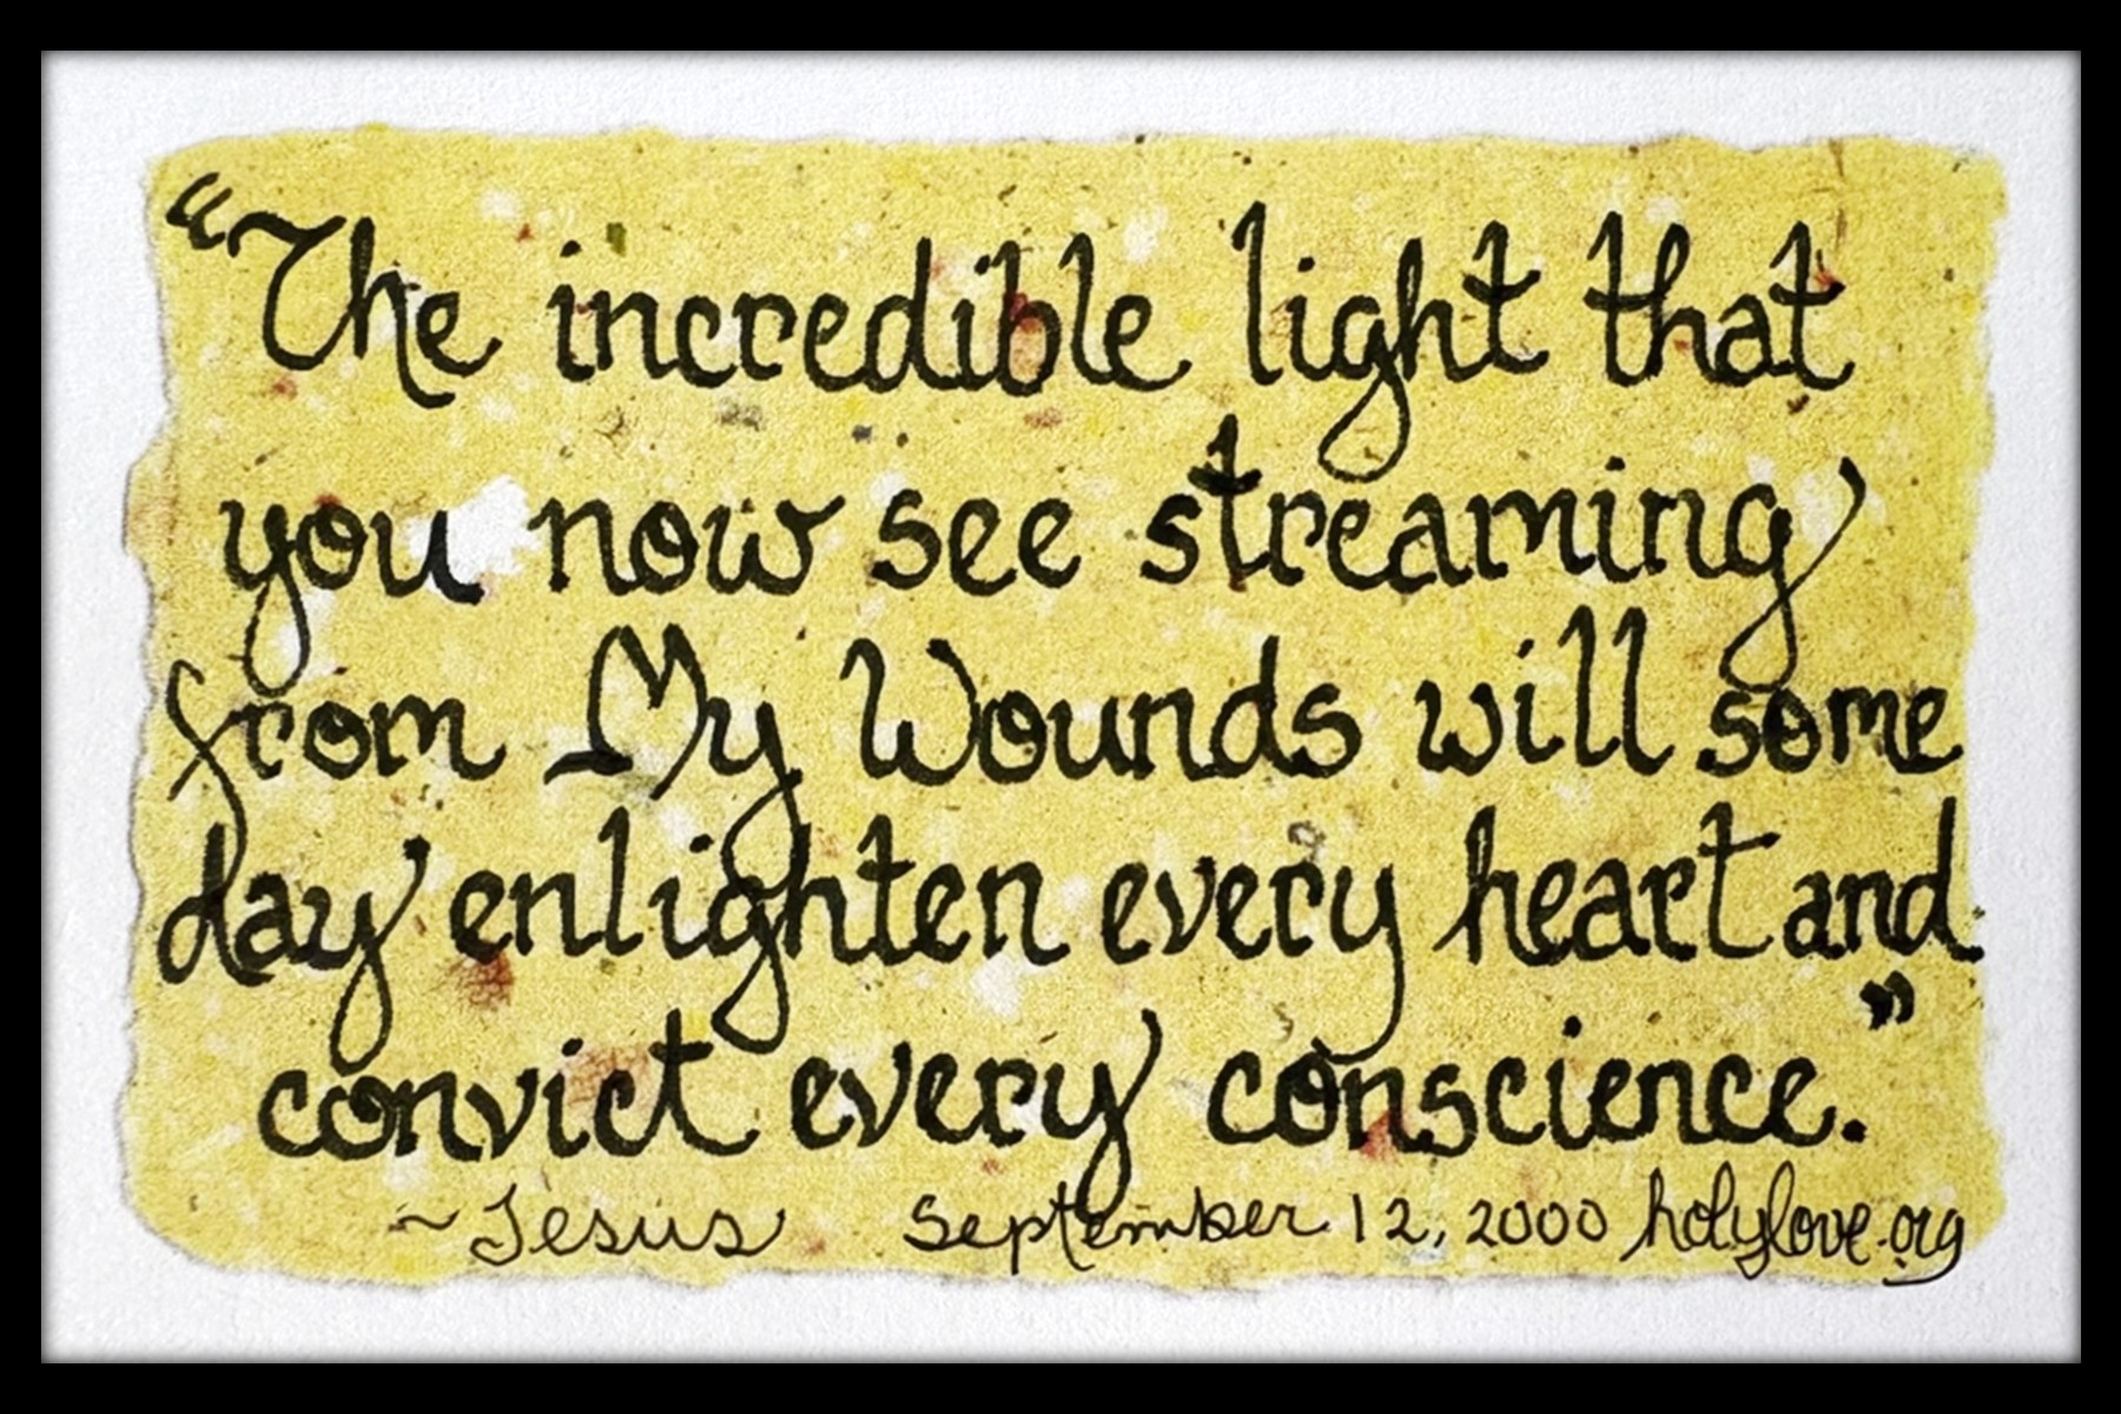 “The incredible light that
you now see streaming
from My Wounds will some
day enlighten every heart and
convict every conscience.”
~Jesus September 12, 2000 holylove.org